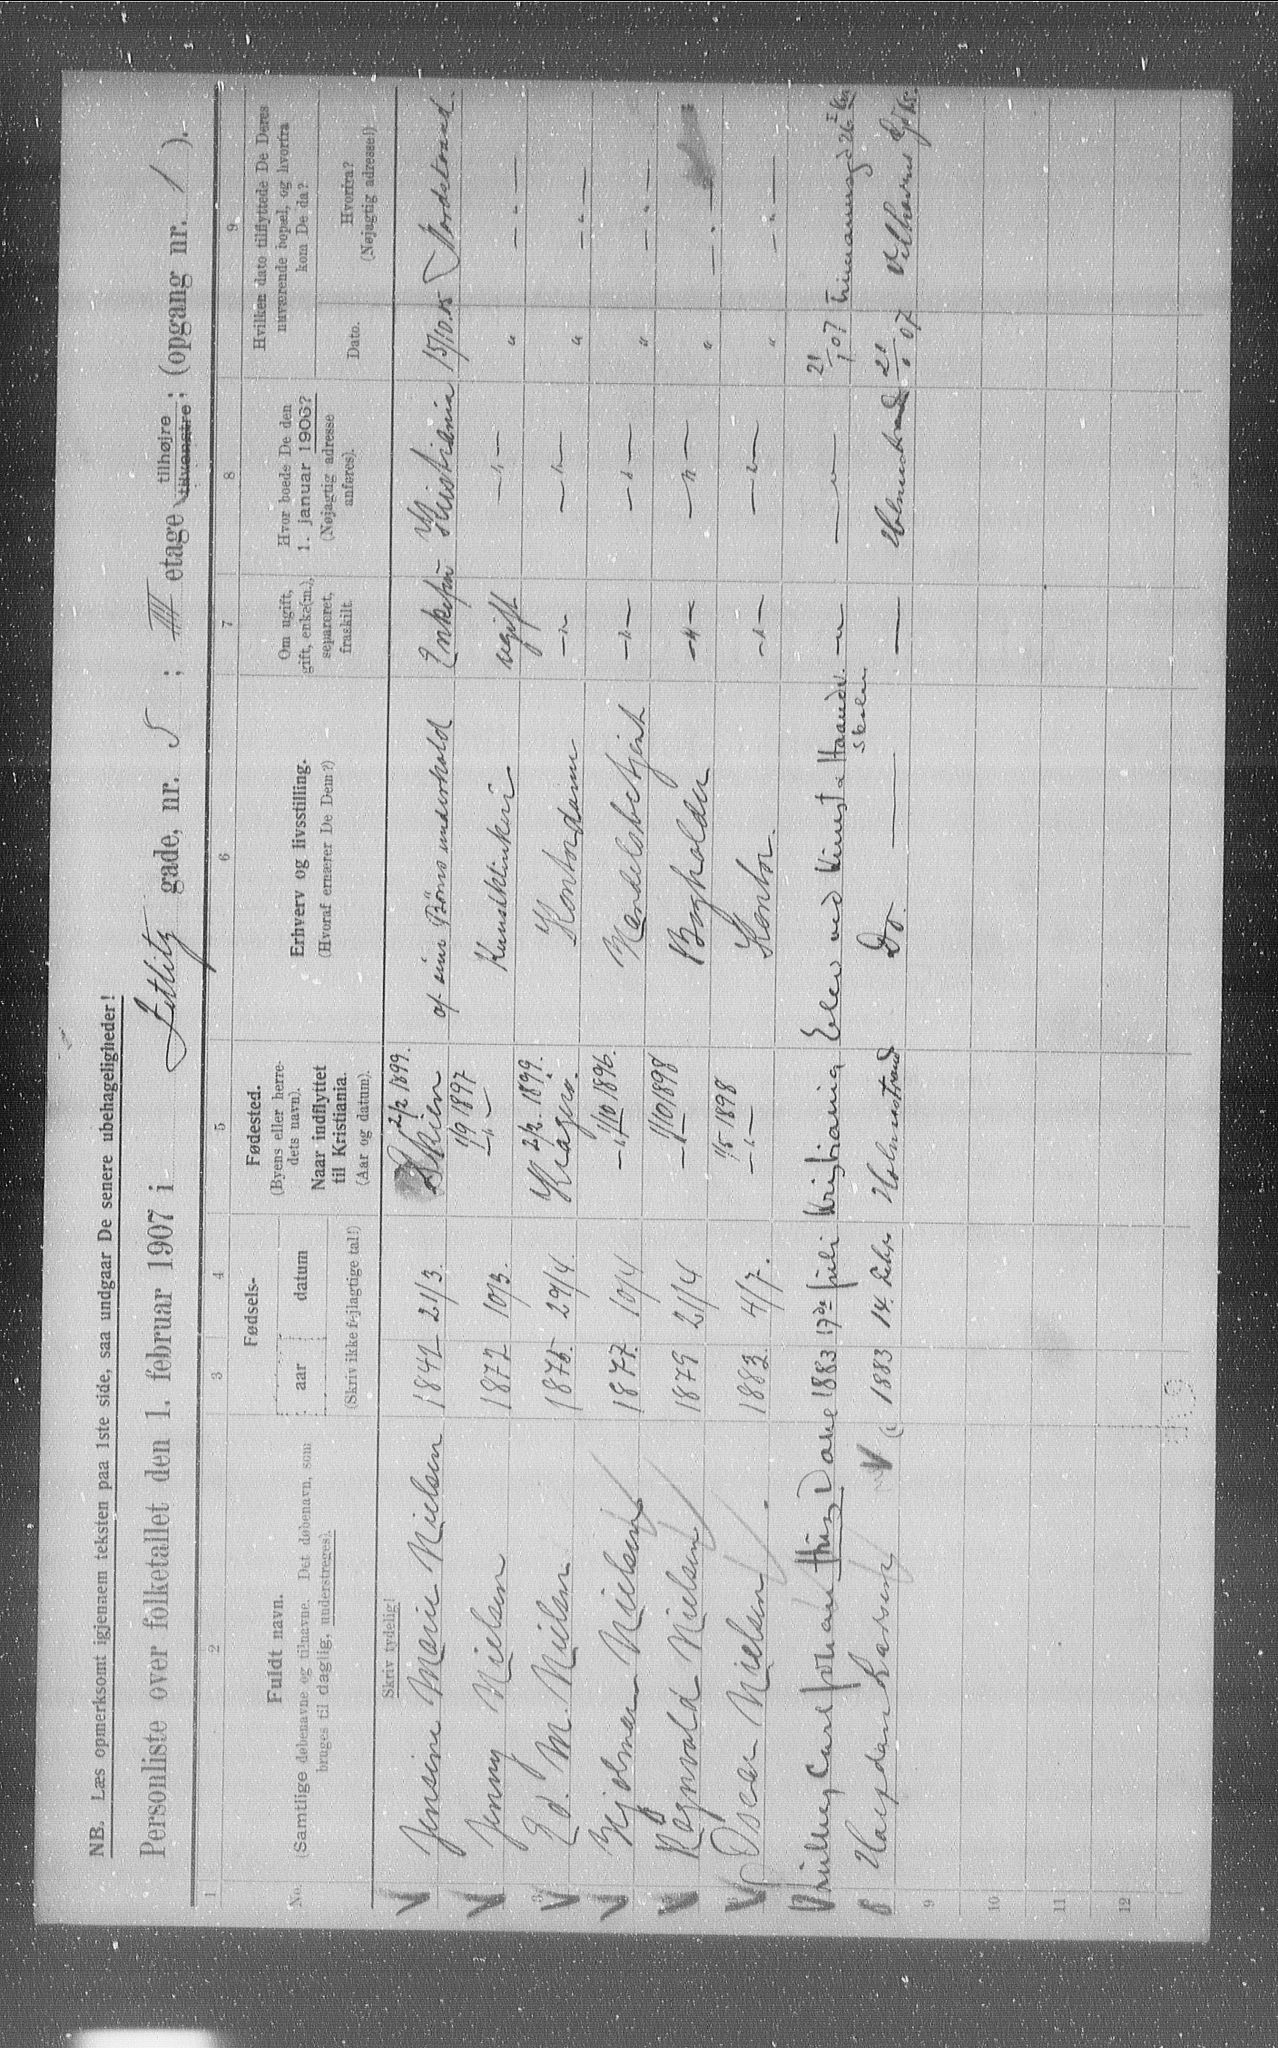 NB. Læs opmerksomt igjennem teksten paa 1ste side, saa undgaar De senere ubehageligheder!
Personliste over folketallet den 1. februar 1907 i Zetlitz gade, nr. 5 ; III etage tilhøjre tilvenstre; (opgang nr. 1 ).
1 2 3 4 5 6 7 8 9
No. Fuldt navn. (Samtlige døbenavne og tilnavne. Det døbenavn, som bruges til daglig, understreges).
Fødsels- aar datum (Skriv ikke fejlagtige tal!)
Fødested. (Byens eller herredets navn). Naar indflyttet til Kristiania. (Aar og datum).
Erhverv og livsstilling. (Hvoraf ernærer De Dem?)
Om ugift, gift, enke(m.), separeret, fraskilt.
Hvor boede De den 1. januar 1906? (Nøjagtig adresse anføres).
Hvilken dato tilflyttede De Deres nuværende bopæl, og hvorfra kom De da?
Dato. Hvorfra? (Nøjagtig adresse!)
Skriv tydelig!
Jensine Marie Nielsen 1842 21/3. Skien 2/2 1899. af sine Børns underhold Enkefru Kristiania 15/10.05 Nordstrand.
Jenny Nielsen 1872 10/3. — " — 1/9 1897 ugift — " — " — " —
3 Ed. M. Nielsen 1875. 29/4. Kragerø. 2/2. 1899. Kontordame — " — — " — " — " —
Hjalmar Nielsen 1877. 10/4 — " — 1/10 1896. Handelsbetjent — " — — " — " — " —
Ragnvald Nielsen 1879 21/4 — " — 1/10 1898 Bogholder — " — — " — " — " —
Oscar Nielsen 1883. 4/7. — " — 1/5 1898 Kontor. — " — — " — " — " —
Carl Johan Dahl 1883 17de juli Kristiania Elev ved Kunst & Haandv. Skolen — " — — " — 21/1 07
Larsen 1883 14. Holmestrand Do. — — Holmestrand 21/1 07
9
10
11
12